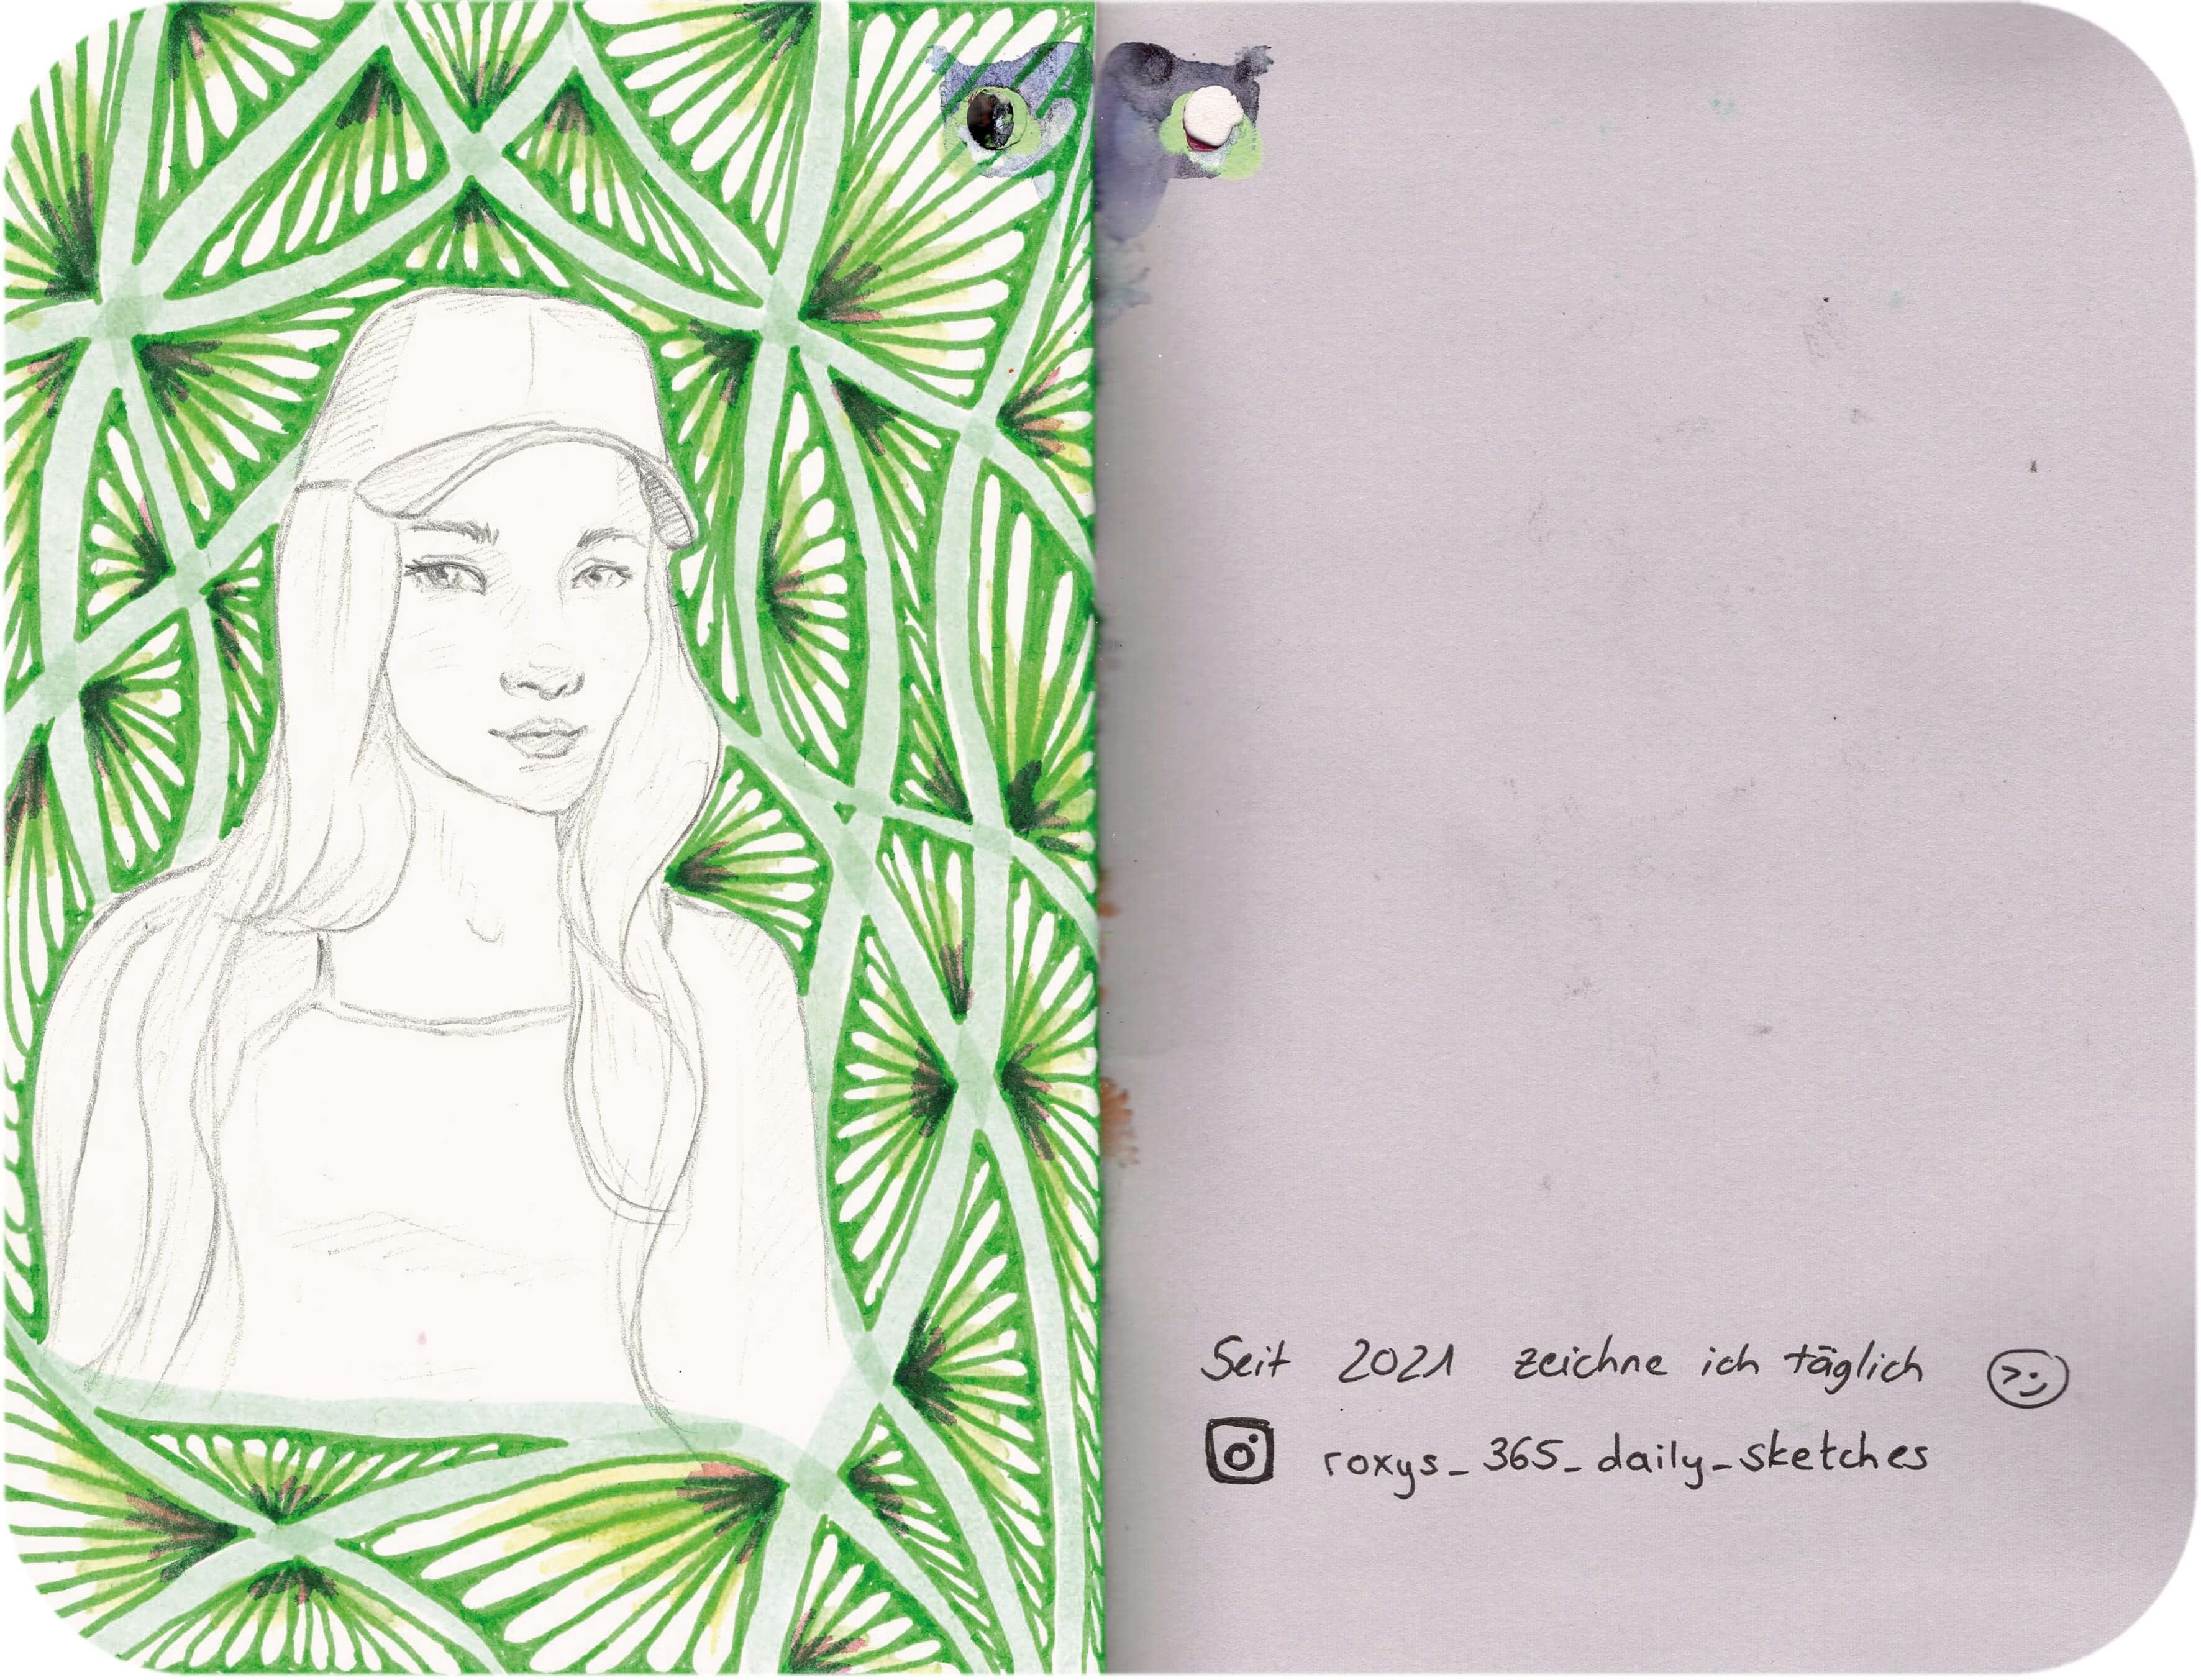 Seit 2021 zeichne ich täglich
roxys_365_daily_sketches